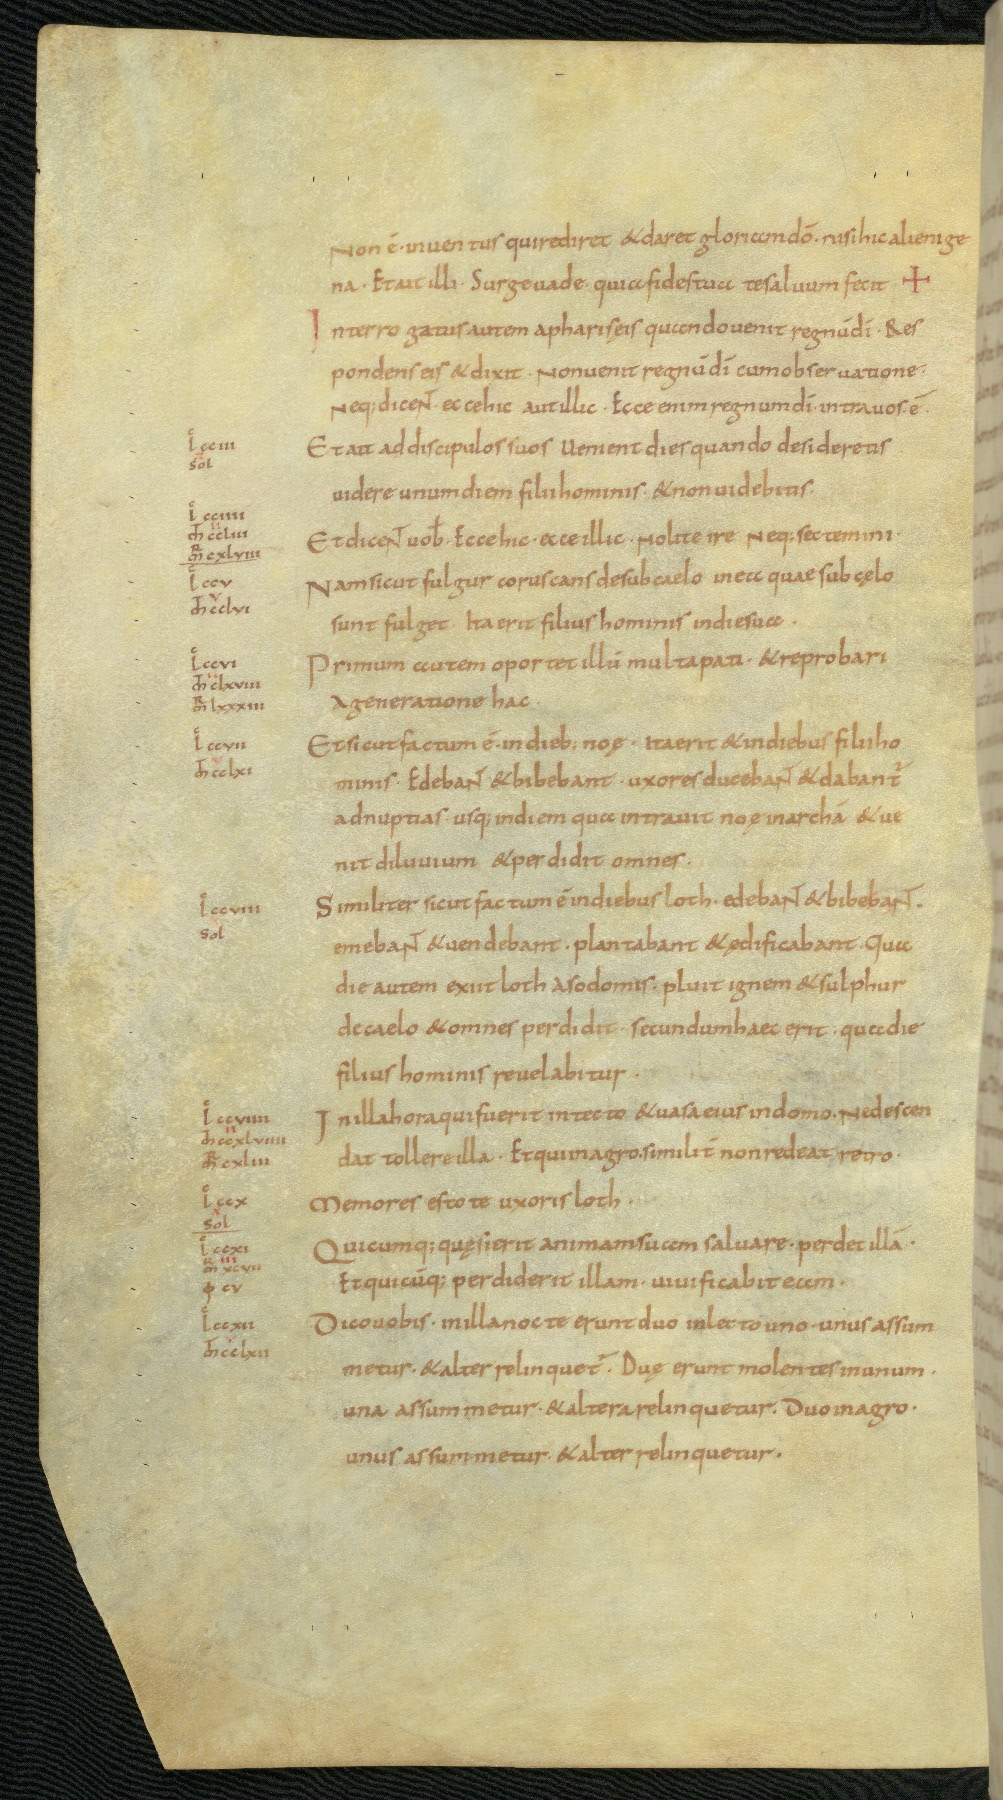 Non ē· inventus qui rediret & daret gloriam dō· nisi hic alienige
na· Et ait illi· Surge vade· quia fides tua te salvum fecit ✝
Interrogatus autem a phariseis quando venit regnū dī· Res
pondens eis & dixit· Non venit regnū dī cum observatione·
Neq; dicent ecce hic aut illic· Ecce enim regnum dī intra vos ē·
l cciii
sol
Et ait ad discipulos suos Venient dies quando desideretis
videre unum diem filii hominis· & non videbitis·
l cciiii
m ccliii
m cxlviii
Et dicent vob· Ecce hic· ecce illic· Nolite ire Neq; sectemini·
l ccv
m cclvi
Nam sicut fulgur coruscans de sub caelo in ea quae sub cęlo
sunt fulget· Ita erit filius hominis in die sua·
l ccvi
m clxviii
m lxxxiii
Primum autem oportet illū multa pati· & reprobari
A generatione hac·
l ccvii
m cclxi
Et sicut factum ē· in dieb; noę· Ita erit & in diebus filii ho
minis· Edebant & bibebant· uxores ducebant & dabant̄
ad nuptias· usq; in diem qua intravit noę in archā & ve
nit diluvium & perdidit omnes·
l ccviii
sol
Similiter sicut factum ē in diebus loth· edebant & bibebant·
emebant & vendebant· plantabant & ędificabant· Qua
die autem exiit loth A sodomis· pluit ignem & sulphur
de caelo & omnes perdidit· secundum haec erit· qua die
filius hominis revelabitur·
l ccviiii
m ccxlviiii
m cxliii
In illa hora qui fuerit in tecto & vasa eius in domo· Ne descen
dat tollere illa· Et qui in agro· similit̄ non redeat retro·
l ccx
sol
Memores estote uxoris loth·
l ccxi
m xcvii
φ cv
Quicumq; quęsierit animam suam salvare· perdet illā·
Et quicūq; perdiderit illam· vivificabit eam·
l ccxii
m cclxii
Dico vobis· in illa nocte erunt duo in lecto uno· unus assum
metur· & alter relinquet̄· Duę erunt molentes in unum·
una assummetur· & altera relinquetur· Duo in agro·
unus assummetur· & alter relinquetur·